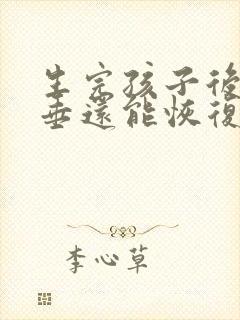 生完孩子後
垂還能恢復
李心草